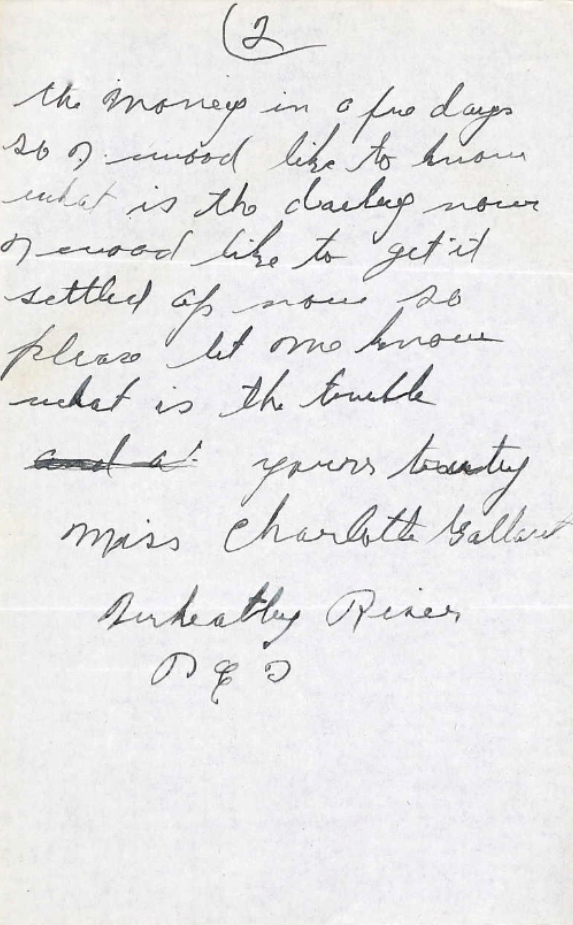 2
the money in a fue days
so I wood like to know
what is the daeley now
I wood like to get it
settled up now so
please let me know
what is the trouble
and a yours truly
Miss Charlotte Gallant
Wheatley River
P E I